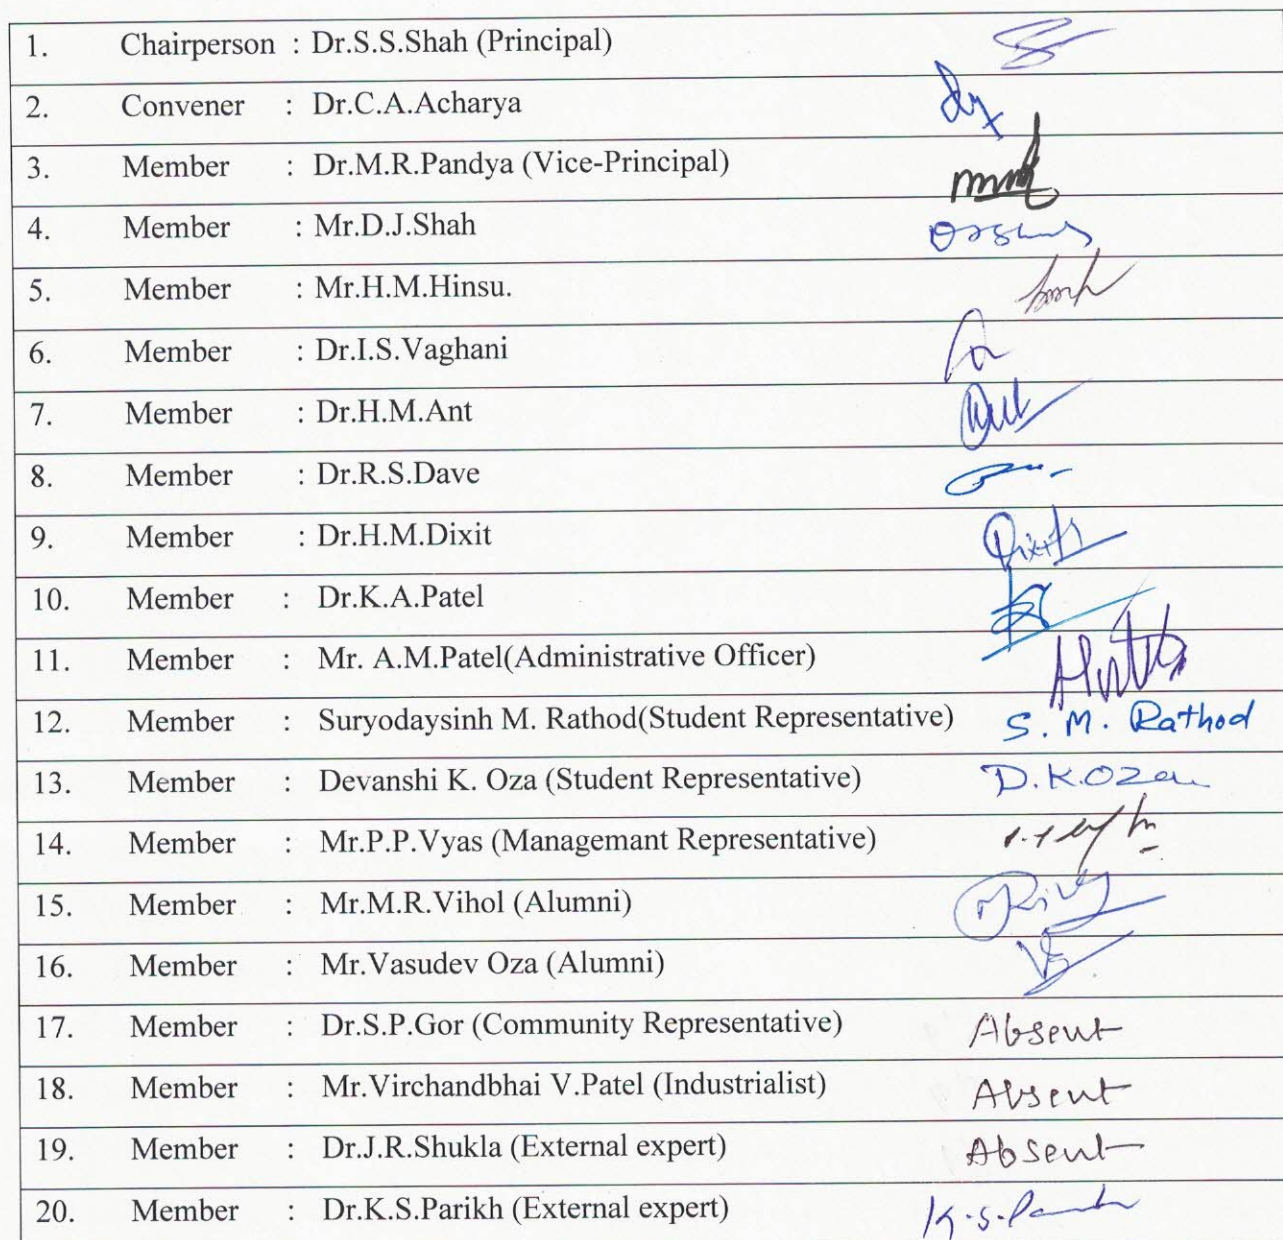 1. Chairperson : Dr.S.S.Shah (Principal)
2. Convener : Dr.C.A.Acharya
3. Member : Dr.M.R.Pandya (Vice-Principal)
4. Member : Mr.D.J.Shah
5. Member : Mr.H.M.Hinsu.
6. Member : Dr.I.S.Vaghani
7. Member : Dr.H.M.Ant
8. Member : Dr.R.S.Dave
9. Member : Dr.H.M.Dixit
10. Member : Dr.K.A.Patel
11. Member : Mr. A.M.Patel(Administrative Officer)
12. Member : Suryodaysinh M. Rathod(Student Representative) S. M. Rathod
13. Member : Devanshi K. Oza (Student Representative) D.K.Oza
14. Member : Mr.P.P.Vyas (Managemant Representative)
15. Member : Mr.M.R.Vihol (Alumni)
16. Member : Mr.Vasudev Oza (Alumni)
17. Member : Dr.S.P.Gor (Community Representative) Absent
18. Member : Mr.Virchandbhai V.Patel (Industrialist) Absent
19. Member : Dr.J.R.Shukla (External expert) Absent
20. Member : Dr.K.S.Parikh (External expert) K.S.Parikh